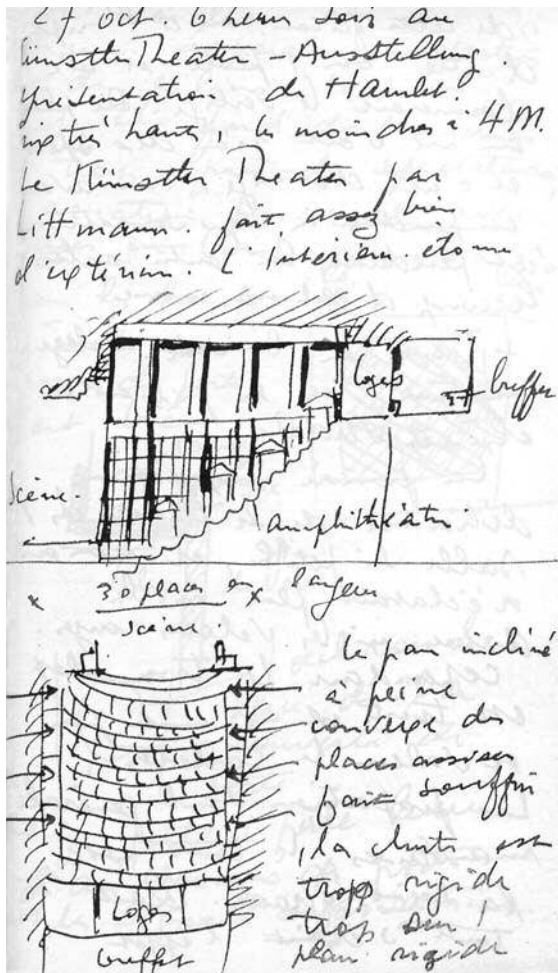 27 oct. 6 heures soir au
ünstler Theater – Ausstellung.
présentation de Hamlet.
très hauts, les moindres à 4 M.
Le Künstler Theater par
Littmann. fait assez bien
d'extérieur. L'intérieur étonne
loges
buffet
scène.
amphithéâtre
30 places en largeur
scène.
le pan incliné
à peine
convexe des
places assises
fait souffrir
, la chute est
trop rigide
trop sur 1
plan rigide
Loges
buffet